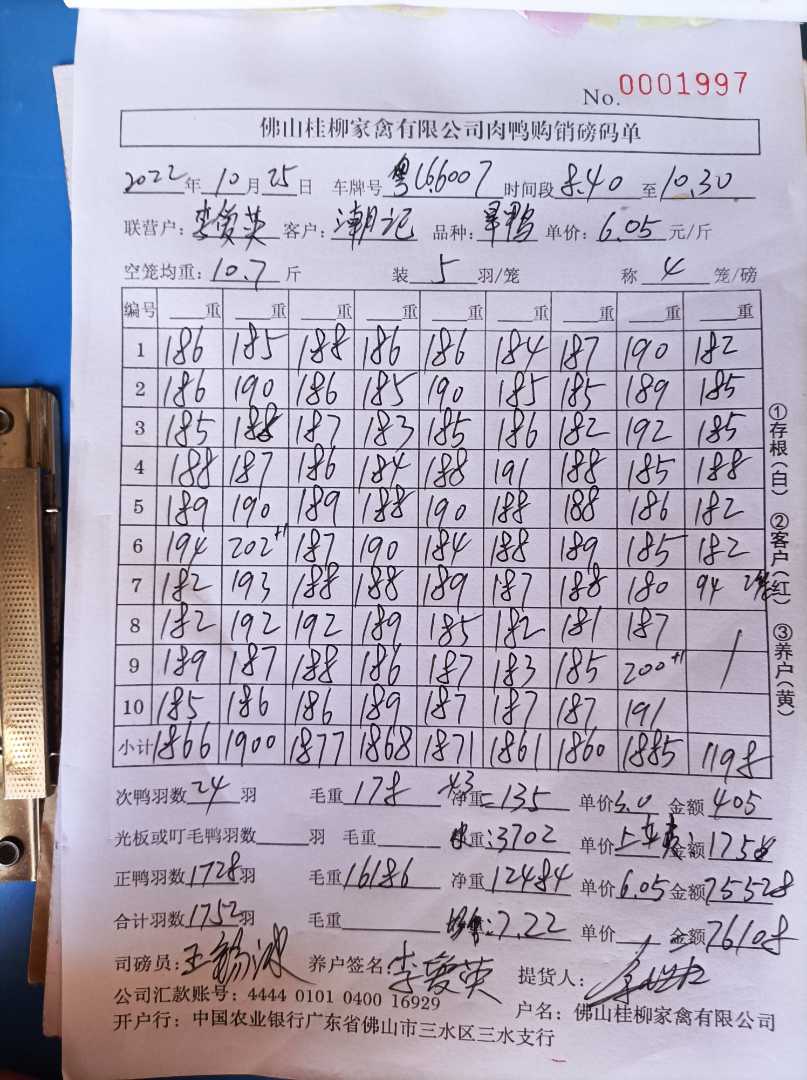 No. 0001997
佛山桂柳家禽有限公司肉鸭购销磅码单
2022年10月25日 车牌号 粤 时间段8.40至10.30
联营户：李爱英 客户：潮记 品种：鸭 单价：6.05元/斤
空笼均重：10.7斤 装5羽/笼 称4笼/磅
编号 重 重 重 重 重 重 重 重 重
1 186 185 188 186 186 184 187 190 182
2 186 190 186 185 190 185 185 189 185
3 185 188 187 183 185 186 182 192 185
4 188 187 186 184 188 191 188 185 188
5 189 190 189 188 190 188 188 186 182
6 194 202+1 187 190 184 188 189 185 182
7 182 193 188 188 189 187 188 180 94 2笼
8 182 192 192 189 185 182 181 187
9 189 187 188 186 187 183 185 200+1
10 185 186 186 189 187 187 187 191
小计 1866 1900 1877 1868 1871 1861 1860 1885 1198
次鸭羽数24羽 毛重178 净重=135 单价3.0 金额405
光板或叮毛鸭羽数 羽 毛重 重:3702 单价 金额1758
正鸭羽数1728羽 毛重16186 净重12484 单价6.05金额75528
合计羽数1752羽 毛重 :7.22 单价 金额76108
司磅员： 养户签名：李爱英 提货人：
公司汇款账号：4444 0101 0400 16929 户名：佛山桂柳家禽有限公司
开户行：中国农业银行广东省佛山市三水区三水支行
①存根（白） ②客户（红） ③养户（黄）